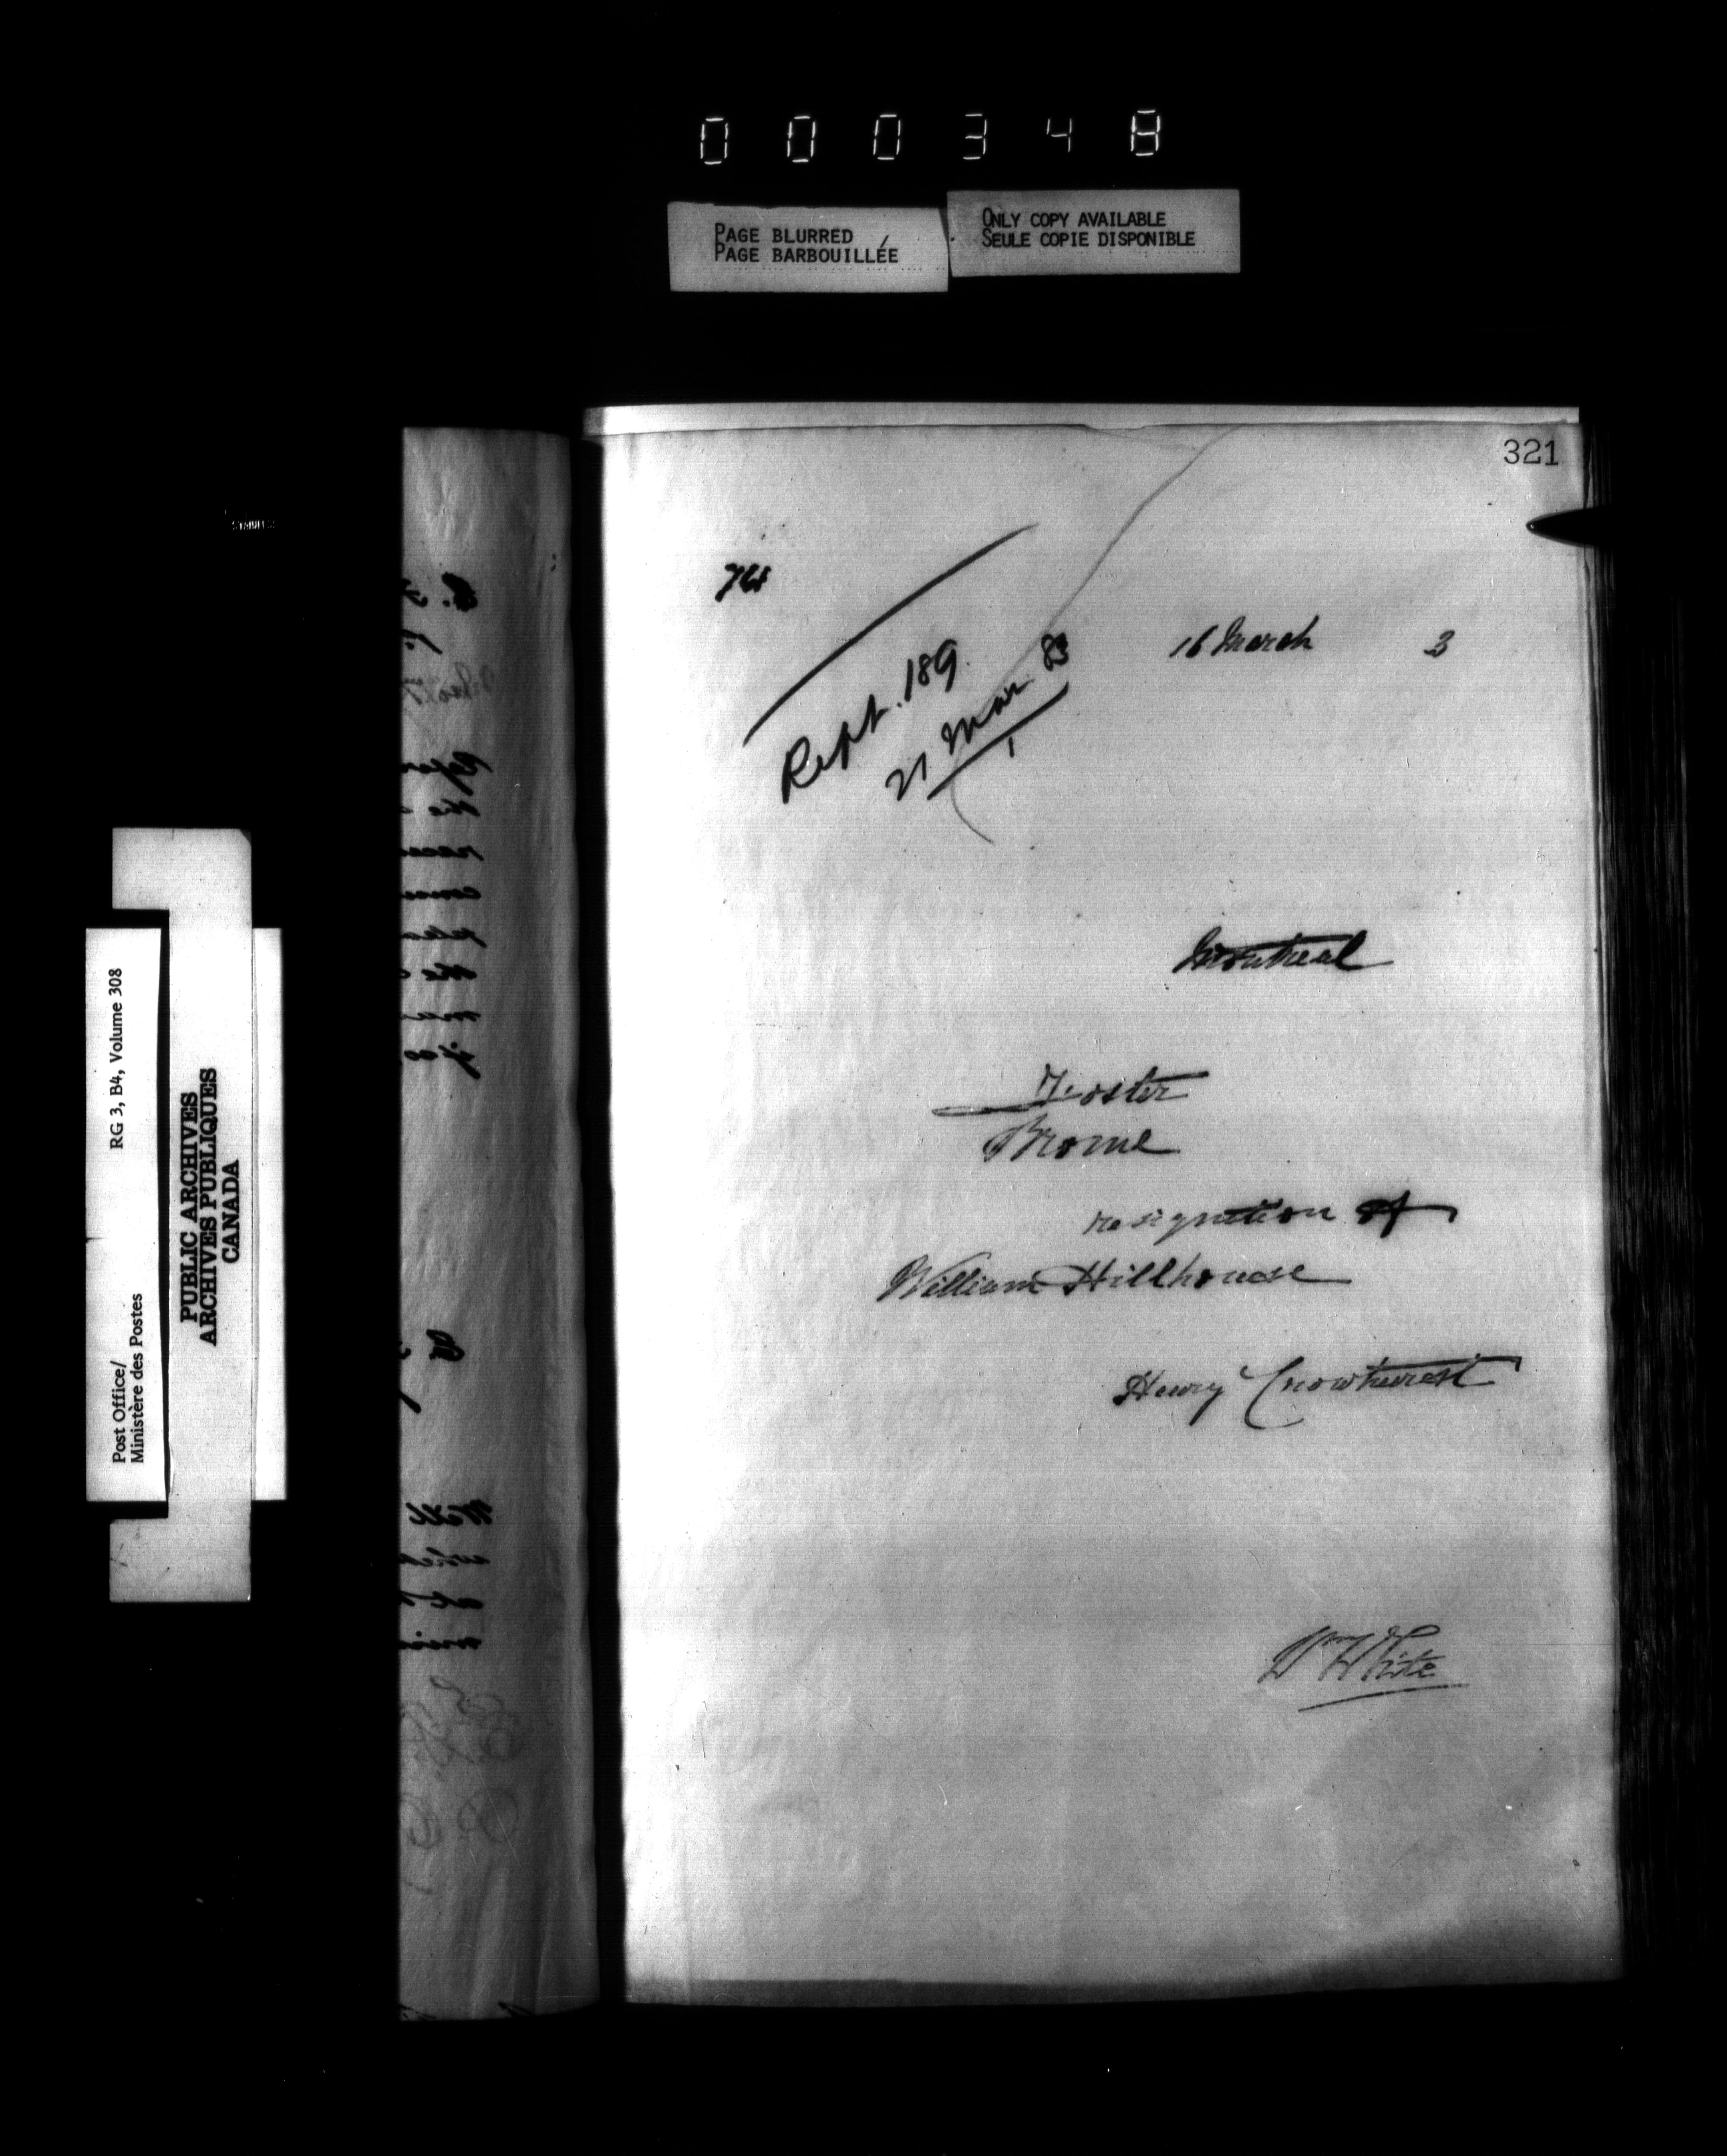 000348
PAGE BLURRED
PAGE BARBOUILLÉE
ONLY COPY AVAILABLE
SEULE COPIE DISPONIBLE
321
Rept. 189
21 Mar. 83
16 March 3
Montreal
Foster
Brome
resignation of
William Hillhouse
Henry Crowhurst
Wm White
Post Office/
Ministère des Postes
RG 3, B4, Volume 308
PUBLIC ARCHIVES
ARCHIVES PUBLIQUES
CANADA